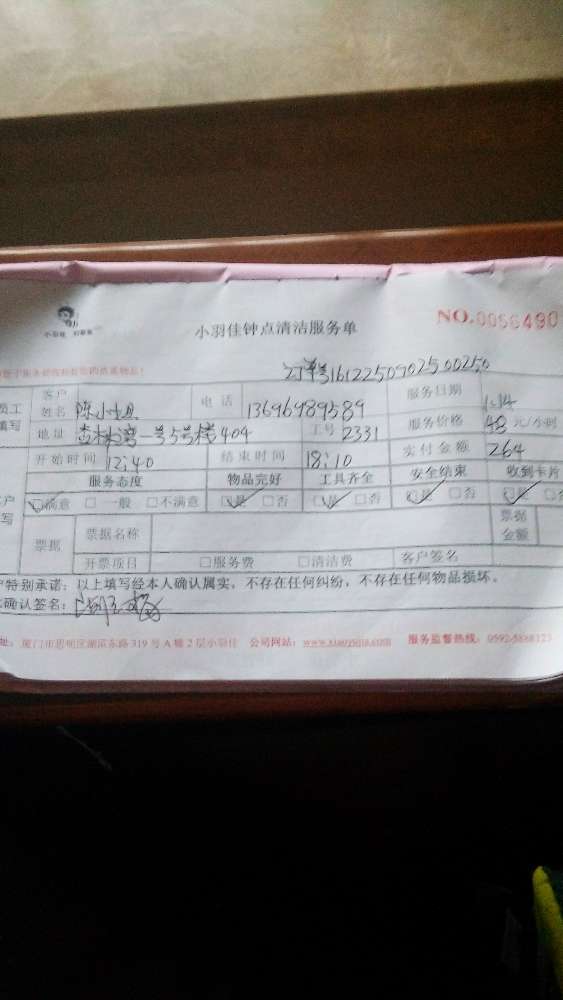 小羽佳钟点清洁服务单
NO.0056490
订单号161225090250 0250
客户姓名 陈小姐 电话 13696989589 服务日期 1.14
地址 杏林湾一号5号楼404 工号 2331 服务价格 48 元/小时
开始时间 12:40 结束时间 18:10 实付金额 264
服务态度 物品完好 工具齐全 安全结束 收到卡片
□满意 □一般 □不满意 □是 □否 □是 □否 □是 □否 □是
票据 票据名称 票据金额
开票项目 □服务费 □清洁费 客户签名
特别承诺：以上填写经本人确认属实，不存在任何纠纷，不存在任何物品损坏。
确认签名：
址：厦门市思明区湖滨东路319号A幢2层小羽佳 公司网站： 服务监督热线：